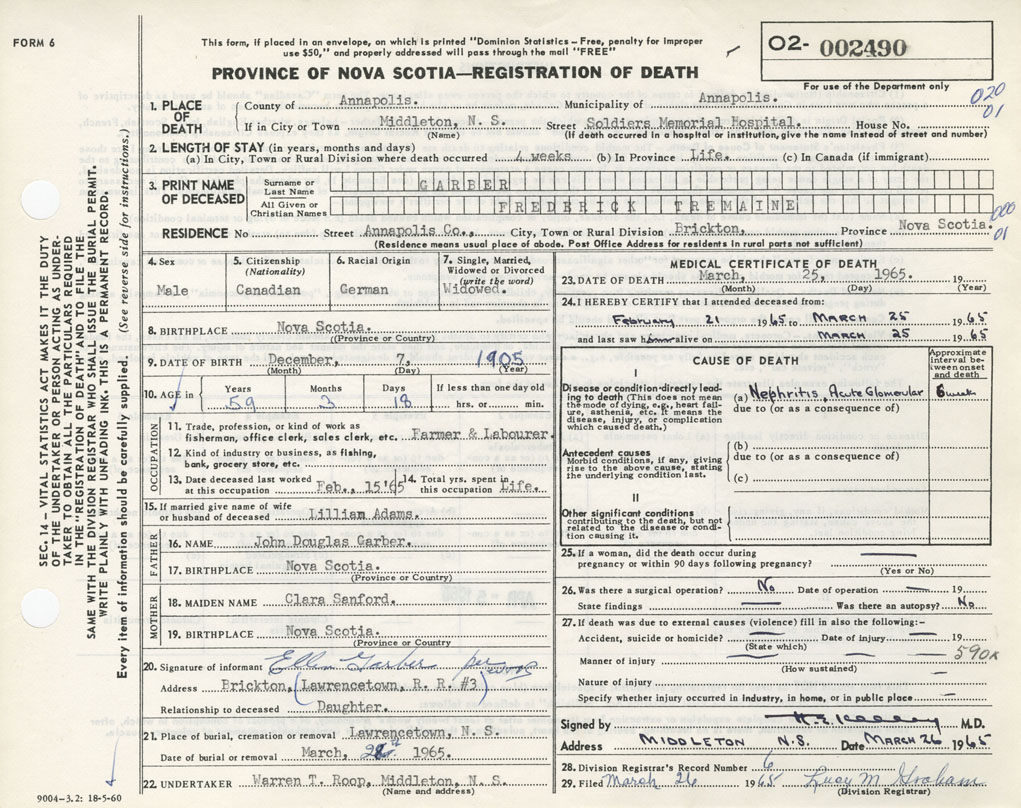 FORM 6
This form, if placed in an envelope, on which is printed "Dominion Statistics – Free, penalty for improper
use $50," and properly addressed will pass through the mail "FREE"
O2- 002490
For use of the Department only
PROVINCE OF NOVA SCOTIA—REGISTRATION OF DEATH
020
01
1. PLACE OF DEATH
County of Annapolis. Municipality of Annapolis.
If in City or Town Middleton, N. S. Street Soldiers Memorial Hospital. House No.
(Name) (If death occurred in a hospital or institution, give the name instead of street and number)
2. LENGTH OF STAY (in years, months and days)
(a) In City, Town or Rural Division where death occurred 4 weeks (b) In Province Life. (c) In Canada (if immigrant)
3. PRINT NAME OF DECEASED
Surname or Last Name GARBER
All Given or Christian Names FREDERICK TREMAINE
000
01
RESIDENCE No Street Annapolis Co., City, Town or Rural Division Brickton, Province Nova Scotia.
(Residence means usual place of abode. Post Office Address for residents in rural parts not sufficient)
4. Sex Male
5. Citizenship (Nationality) Canadian
6. Racial Origin German
7. Single, Married, Widowed or Divorced (write the word) Widowed.
8. BIRTHPLACE Nova Scotia.
((Province or Country)
9. DATE OF BIRTH December, 7, 1905
(Month) (Day) (Year)
10. AGE in Years 59 Months 3 Days 18 If less than one day old hrs. or min.
OCCUPATION
11. Trade, profession, or kind of work as
fisherman, office clerk, sales clerk, etc. Farmer & Labourer.
12. Kind of industry or business, as fishing,
bank, grocery store, etc.
13. Date deceased last worked at this occupation Feb., 15'65
14. Total yrs. spent in this occupation Life.
15. If married give name of wife
or husband of deceased Lilliam Adams.
FATHER
16. NAME John Douglas Garber.
17. BIRTHPLACE Nova Scotia.
(Province or Country)
MOTHER
18. MAIDEN NAME Clara Sanford.
19. BIRTHPLACE Nova Scotia.
(Province or Country
20. Signature of informant Ellen Garber per
Address Brickton, (Lawrencetown, R. R. #3)
Relationship to deceased Daughter.
21. Place of burial, cremation or removal Lawrencetown, N. S.
Date of burial or removal March, 1965.
22. UNDERTAKER Warren T. Roop, Middleton, N. S.
(Name and address)
MEDICAL CERTIFICATE OF DEATH
23. DATE OF DEATH March, 25, 1965. 19
(Month) (Day) (Year)
24. I HEREBY CERTIFY that I attended deceased from:
February 21 1965 to MARCH 25 1965
and last saw h alive on MARCH 25 1965
CAUSE OF DEATH
Approximate interval between onset and death
I
Disease or condition directly lead-
ing to death (This does not mean
the mode of dying, e.g., heart fail-
ure, asthenia, etc. It means the
disease, injury, or complication
which caused death.)
(a) Nephritis, Acute Glomerular 6 weeks
due to (or as a consequence of)
Antecedent causes
Morbid conditions, if any, giving
rise to the above cause, stating
the underlying condition last.
(b)
due to (or as a consequence of)
(c)
II
Other significant conditions
contributing to the death, but not
related to the disease or condi-
tion causing it.
25. If a woman, did the death occur during
pregnancy or within 90 days following pregnancy?
(Yes or No)
26. Was there a surgical operation? No Date of operation 19
State findings Was there an autopsy? No
27. If death was due to external causes (violence) fill in also the following:-
Accident, suicide or homicide? Date of injury 19
(State which)
590x
Manner of injury
(How sustained)
Nature of injury
Specify whether injury occurred in industry, in home, or in public place
Signed by M.D.
Address MIDDLETON N.S. Date MARCH 26 1965
28. Division Registrar's Record Number 6
29. Filed March 26 1965 Lucy M Graham
(Division Registrar)
SEC. 14 – VITAL STATISTICS ACT MAKES IT THE DUTY
OF THE UNDERTAKER OR PERSON ACTING AS UNDER-
TAKER TO OBTAIN ALL THE PARTICULARS REQUIRED
IN THE "REGISTRATION OF DEATH" AND TO FILE THE
SAME WITH THE DIVISION REGISTRAR WHO SHALL ISSUE THE BURIAL PERMIT.
WRITE PLAINLY WITH UNFADING INK. THIS IS A PERMANENT RECORD.
Every item of information should be carefully supplied. (See reverse side for instructions.)
9004–3.2: 18-5-60